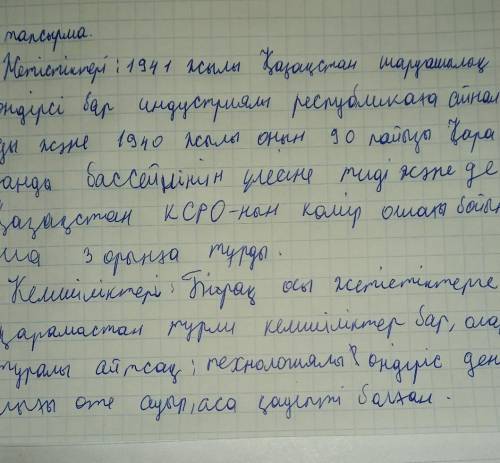 тапсырма.
Жетістіктері: 1941 жылы Қазақстан шаруашылақ
өндірсі бар индустриялы республикаға айнал
ды және 1940 жылы оның 90 пайызы Қара
ғанды бассейнінің үлесіне тиді және де
Қазақстан КСРО-ның көмір ошағы бойын
ша 3 орынға тұрды.
Кемшіліктері: Бірақ осы жетістіктерге
қарамастан түрлі кемшіліктер бар, олар
туралы айтсақ; технологиялы өндіріс ден
өте ауыр, аса қауіпті болған.